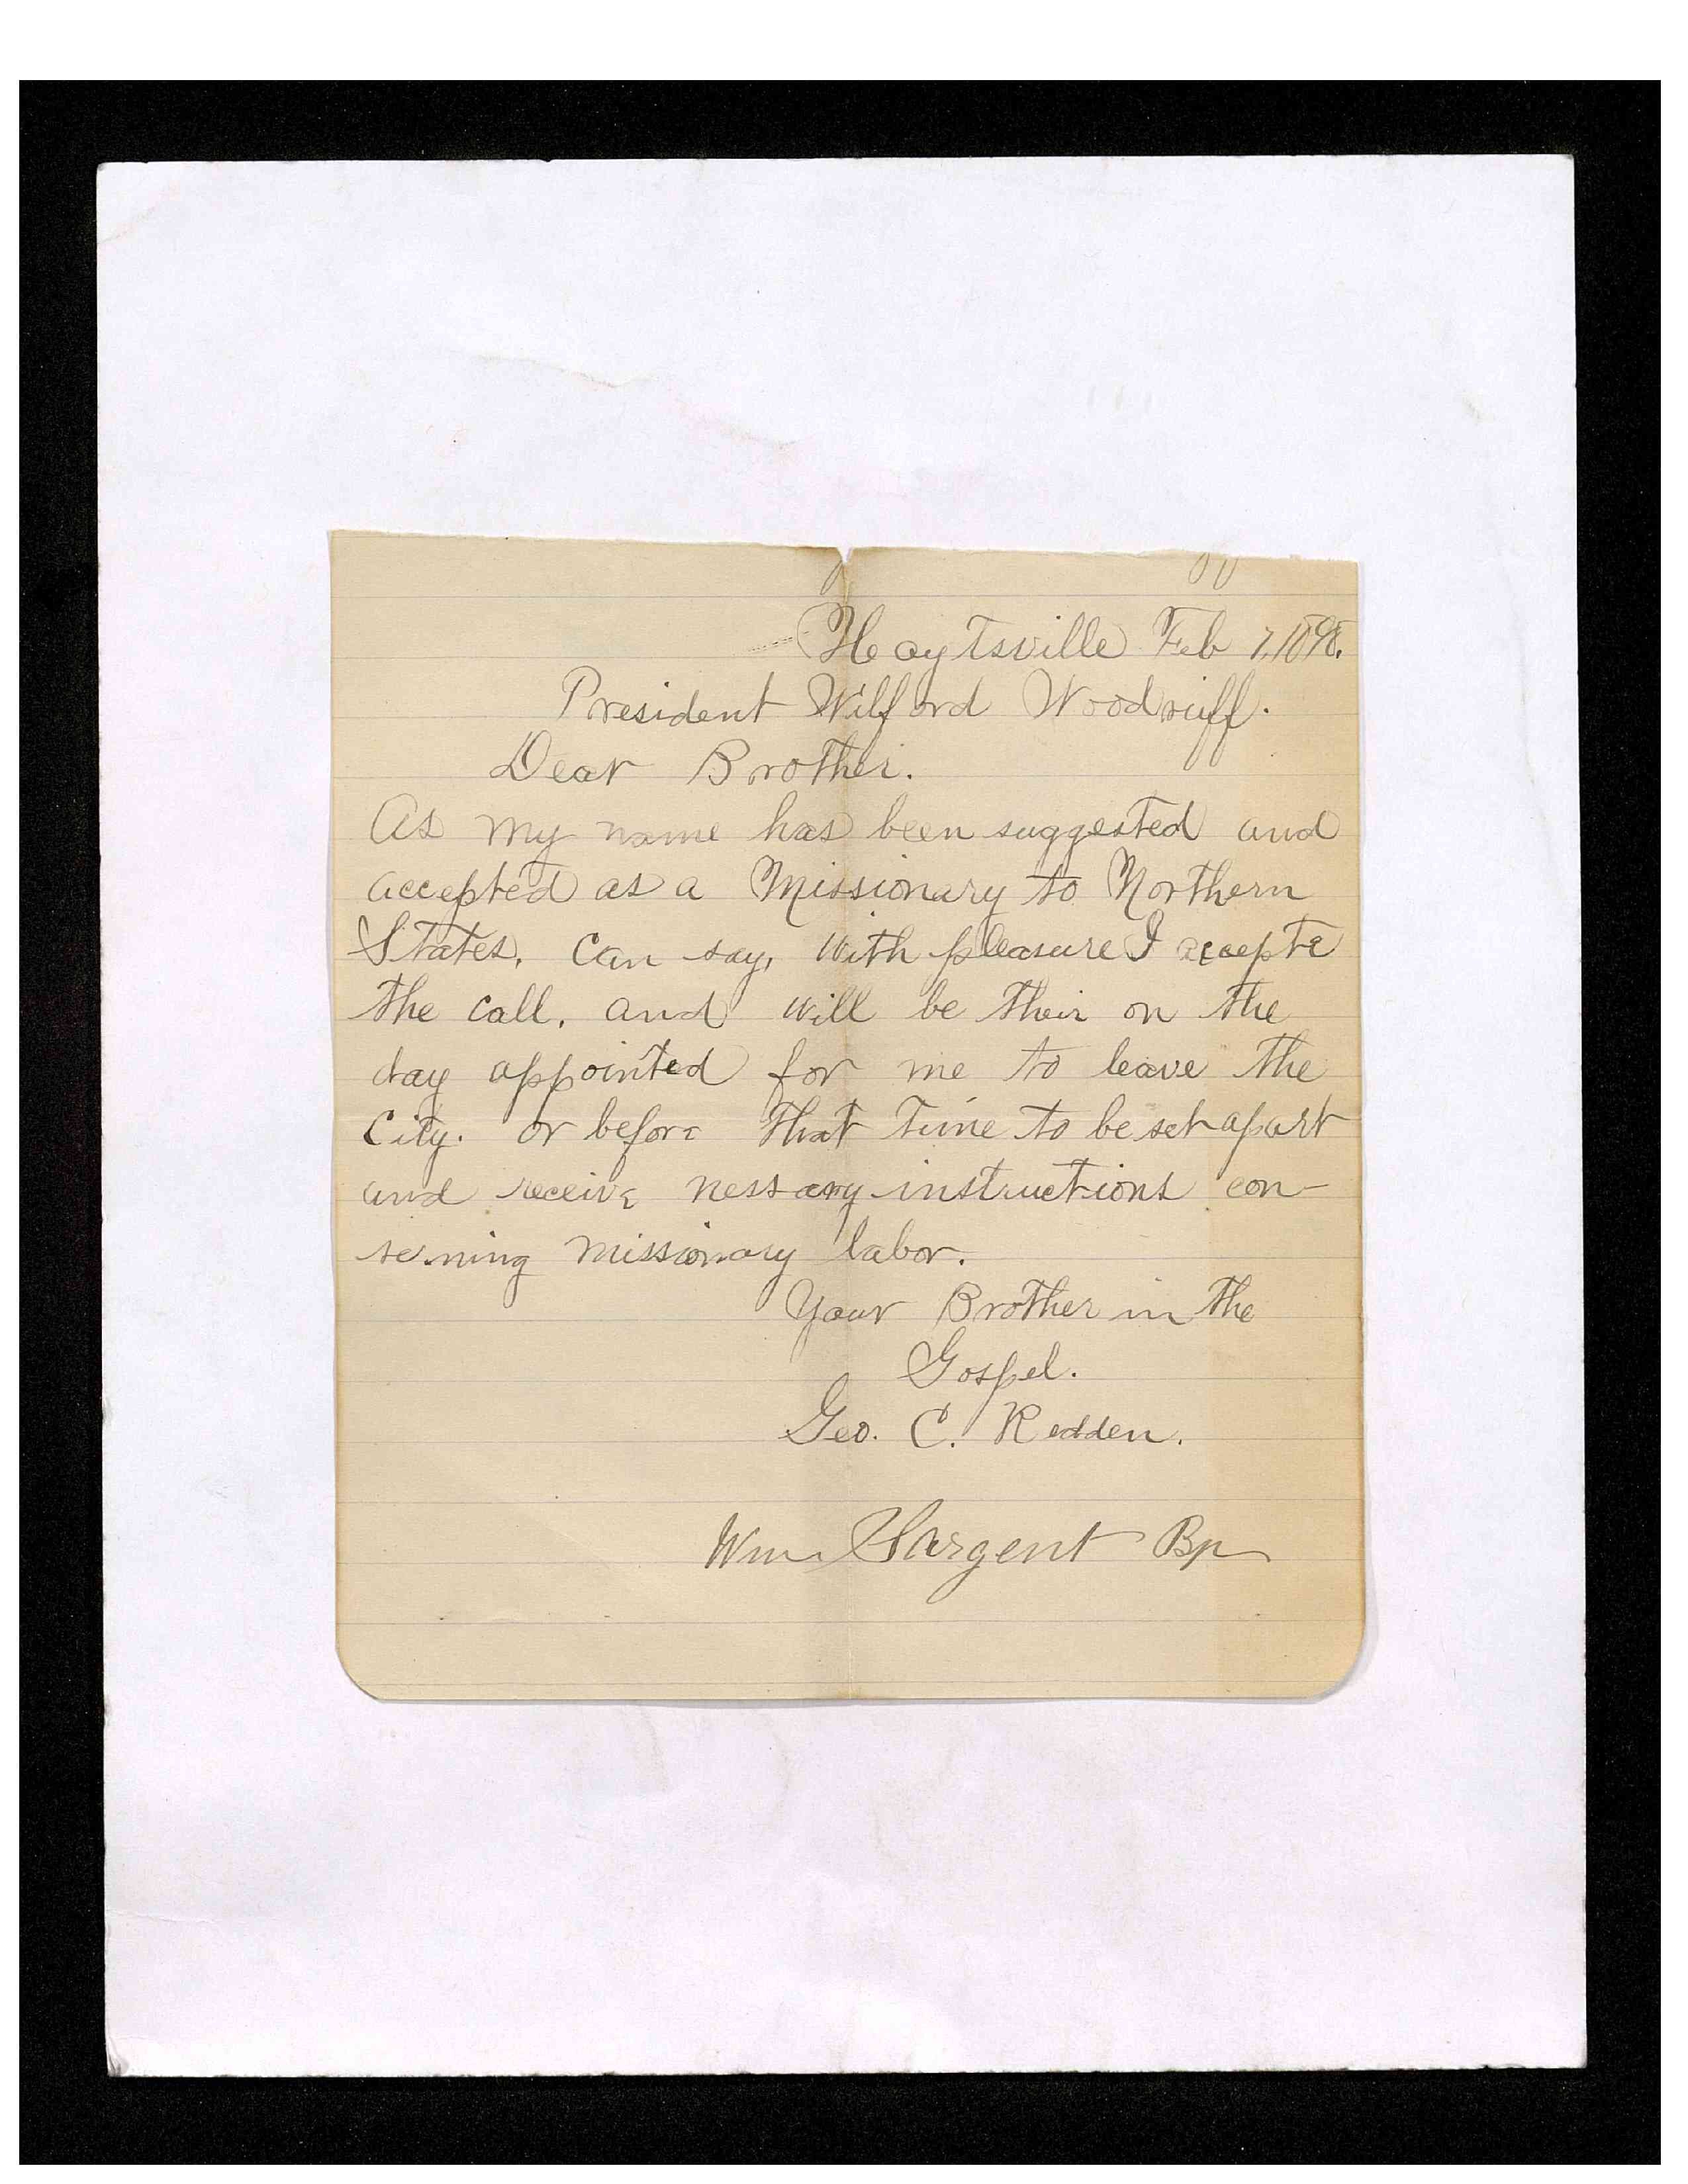 Hoytsville Feb 7, 1898.
President Wilford Woodruff.
Dear Brother.
As my name has been suggested and
accepted as a Missionary to Northern
States, Can say, With pleasure I accepte
the Call, and will be their on the
day appointed for me to leave the
City. or before that time to be set apart
and receive nessary instructions con-
serning missionary labor.
Your Brother in the
Gospel.
Geo. C. Redden.
Wm Sargent Bp